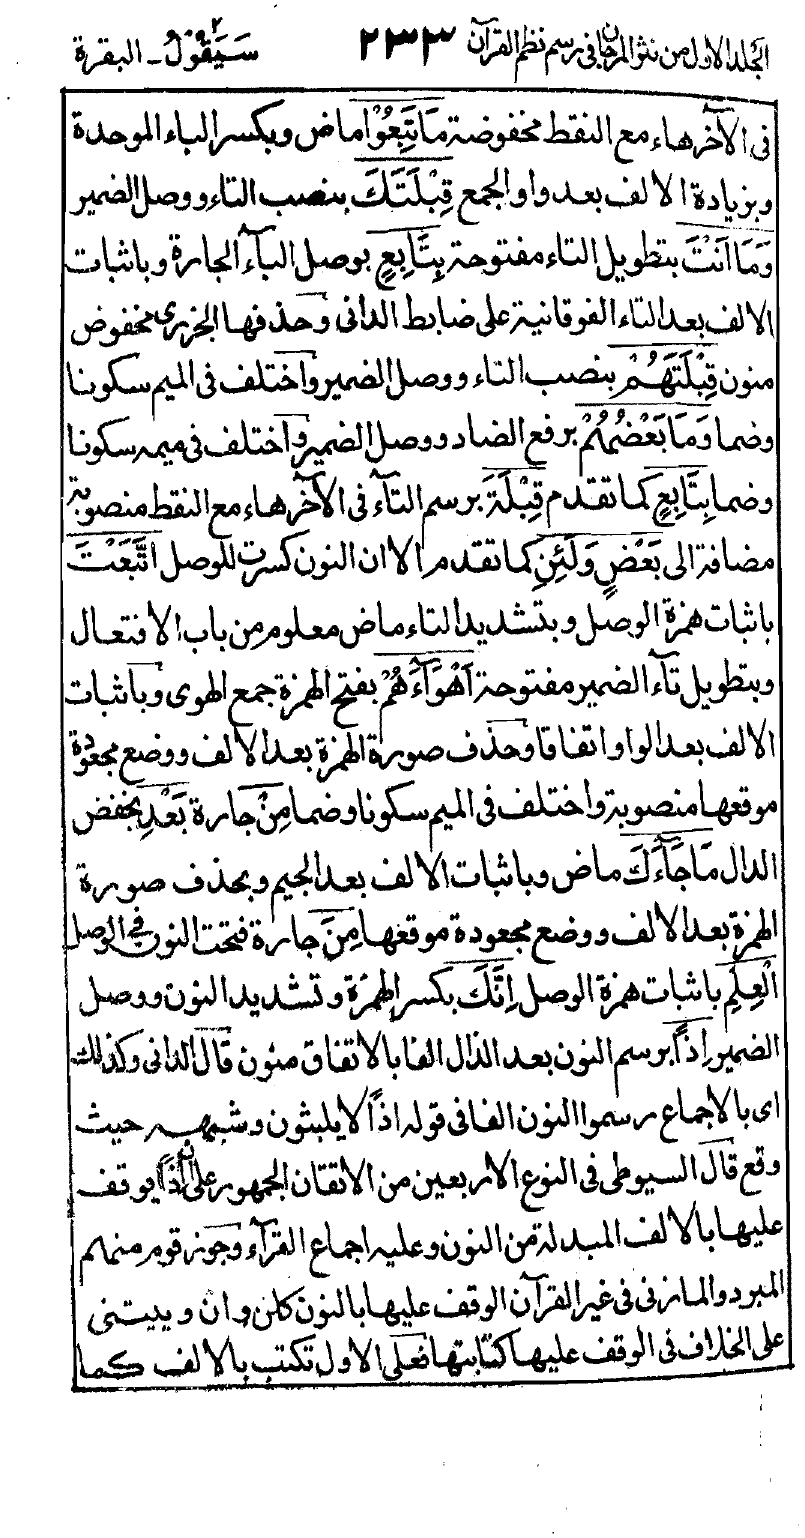 الجلد الاول من نثر المرجان فى رسم نظم القرآن ٢٣٣ سَيَقُوْلُ ٢ ـ البقرة
فى الآخر هاء مع النقط مخفوضة مَا تَبِعُوْا ماض وبكسر الباء الموحدة
وبزيادة الالف بعد واو الجمع قِبْلَتَكَ بنصب التاء ووصل الضمير
وَمَا اَنْتَ بتطويل التاء مفتوحة بِتَابِعٍ بوصل البآء الجارة وباثبات
الالف بعد التاء الفوقانية على ضابط الدانى وحذفها الجزرى مخفوض
منون قِبْلَتَهُمْ بنصب التاء ووصل الضمير واختلف فى الميم سكونا
وضما وَمَا بَعْضُهُمْ برفع الضاد ووصل الضمير واختلف فى ميمه سكونا
وضما بِتَابِعٍ كما تقدم قِبْلَةَ برسم التآء فى الآخر هاء مع النقط منصوبة
مضافة الى بَعْضٍ وَلَئِنِ كما تقدم الا ان النون كسرت للوصل اتَّبَعْتَ
باثبات همزة الوصل وبتشديد التاء ماض معلوم من باب الافتعال
وبتطويل تآء الضمير مفتوحة اَهْوَآءَهُمْ بفتح الهمزة جمع الهوى وباثبات
الالف بعد الواو اتفاقا وحذف صورة الهمزة بعد الالف ووضع مجعودة
موقعها منصوبة واختلف فى الميم سكونا وضما مِنْ جارة بَعْدِ بخفض
الدال مَا جَآءَكَ ماض وباثبات الالف بعد الجيم وبحذف صورة
الهمزة بعد الالف ووضع مجعودة موقعها مِنَ جارة فتحت النون فى الوصل
الْعِلْمِ باثبات همزة الوصل اِنَّكَ بكسر الهمزة وتشديد النون ووصل
الضمير اِذًا برسم النون بعد الذال الفا بالاتفاق منون قال الدانى وكذلك
اى بالاجماع رسموا النون الفا فى قوله اذًا لا يلبثون وشبهه حيث
وقع قال السيوطى فى النوع الاربعين من الاتقان الجمهور على ان اذًا يوقف
عليها بالالف المبدلة من النون وعليه اجماع القرآء وجوز قوم منهم
المبرد والمازنى فى غير القرآن الوقف عليها بالنون كلن وان ويبتنى
على الخلاف فى الوقف عليها كتابتها فعلى الاول تكتب بالالف كما